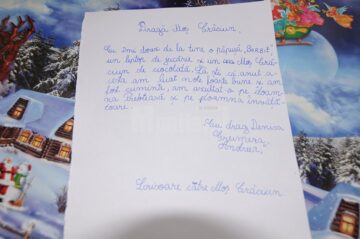 Dragă Moș Crăciun,
Eu îmi doresc de la tine o păpușă „Barbi”,
un bebeluș de jucărie și un Moș Cră-
ciun de ciocolată. Să știi că anul a-
cesta am luat note foarte bune și am
fost cuminte, am ascultat-o pe doam-
na Preoteasă și pe doamna învăță-
toare.
Cu drag Denisa
Andreea,
Scrisoare către Moș Crăciun